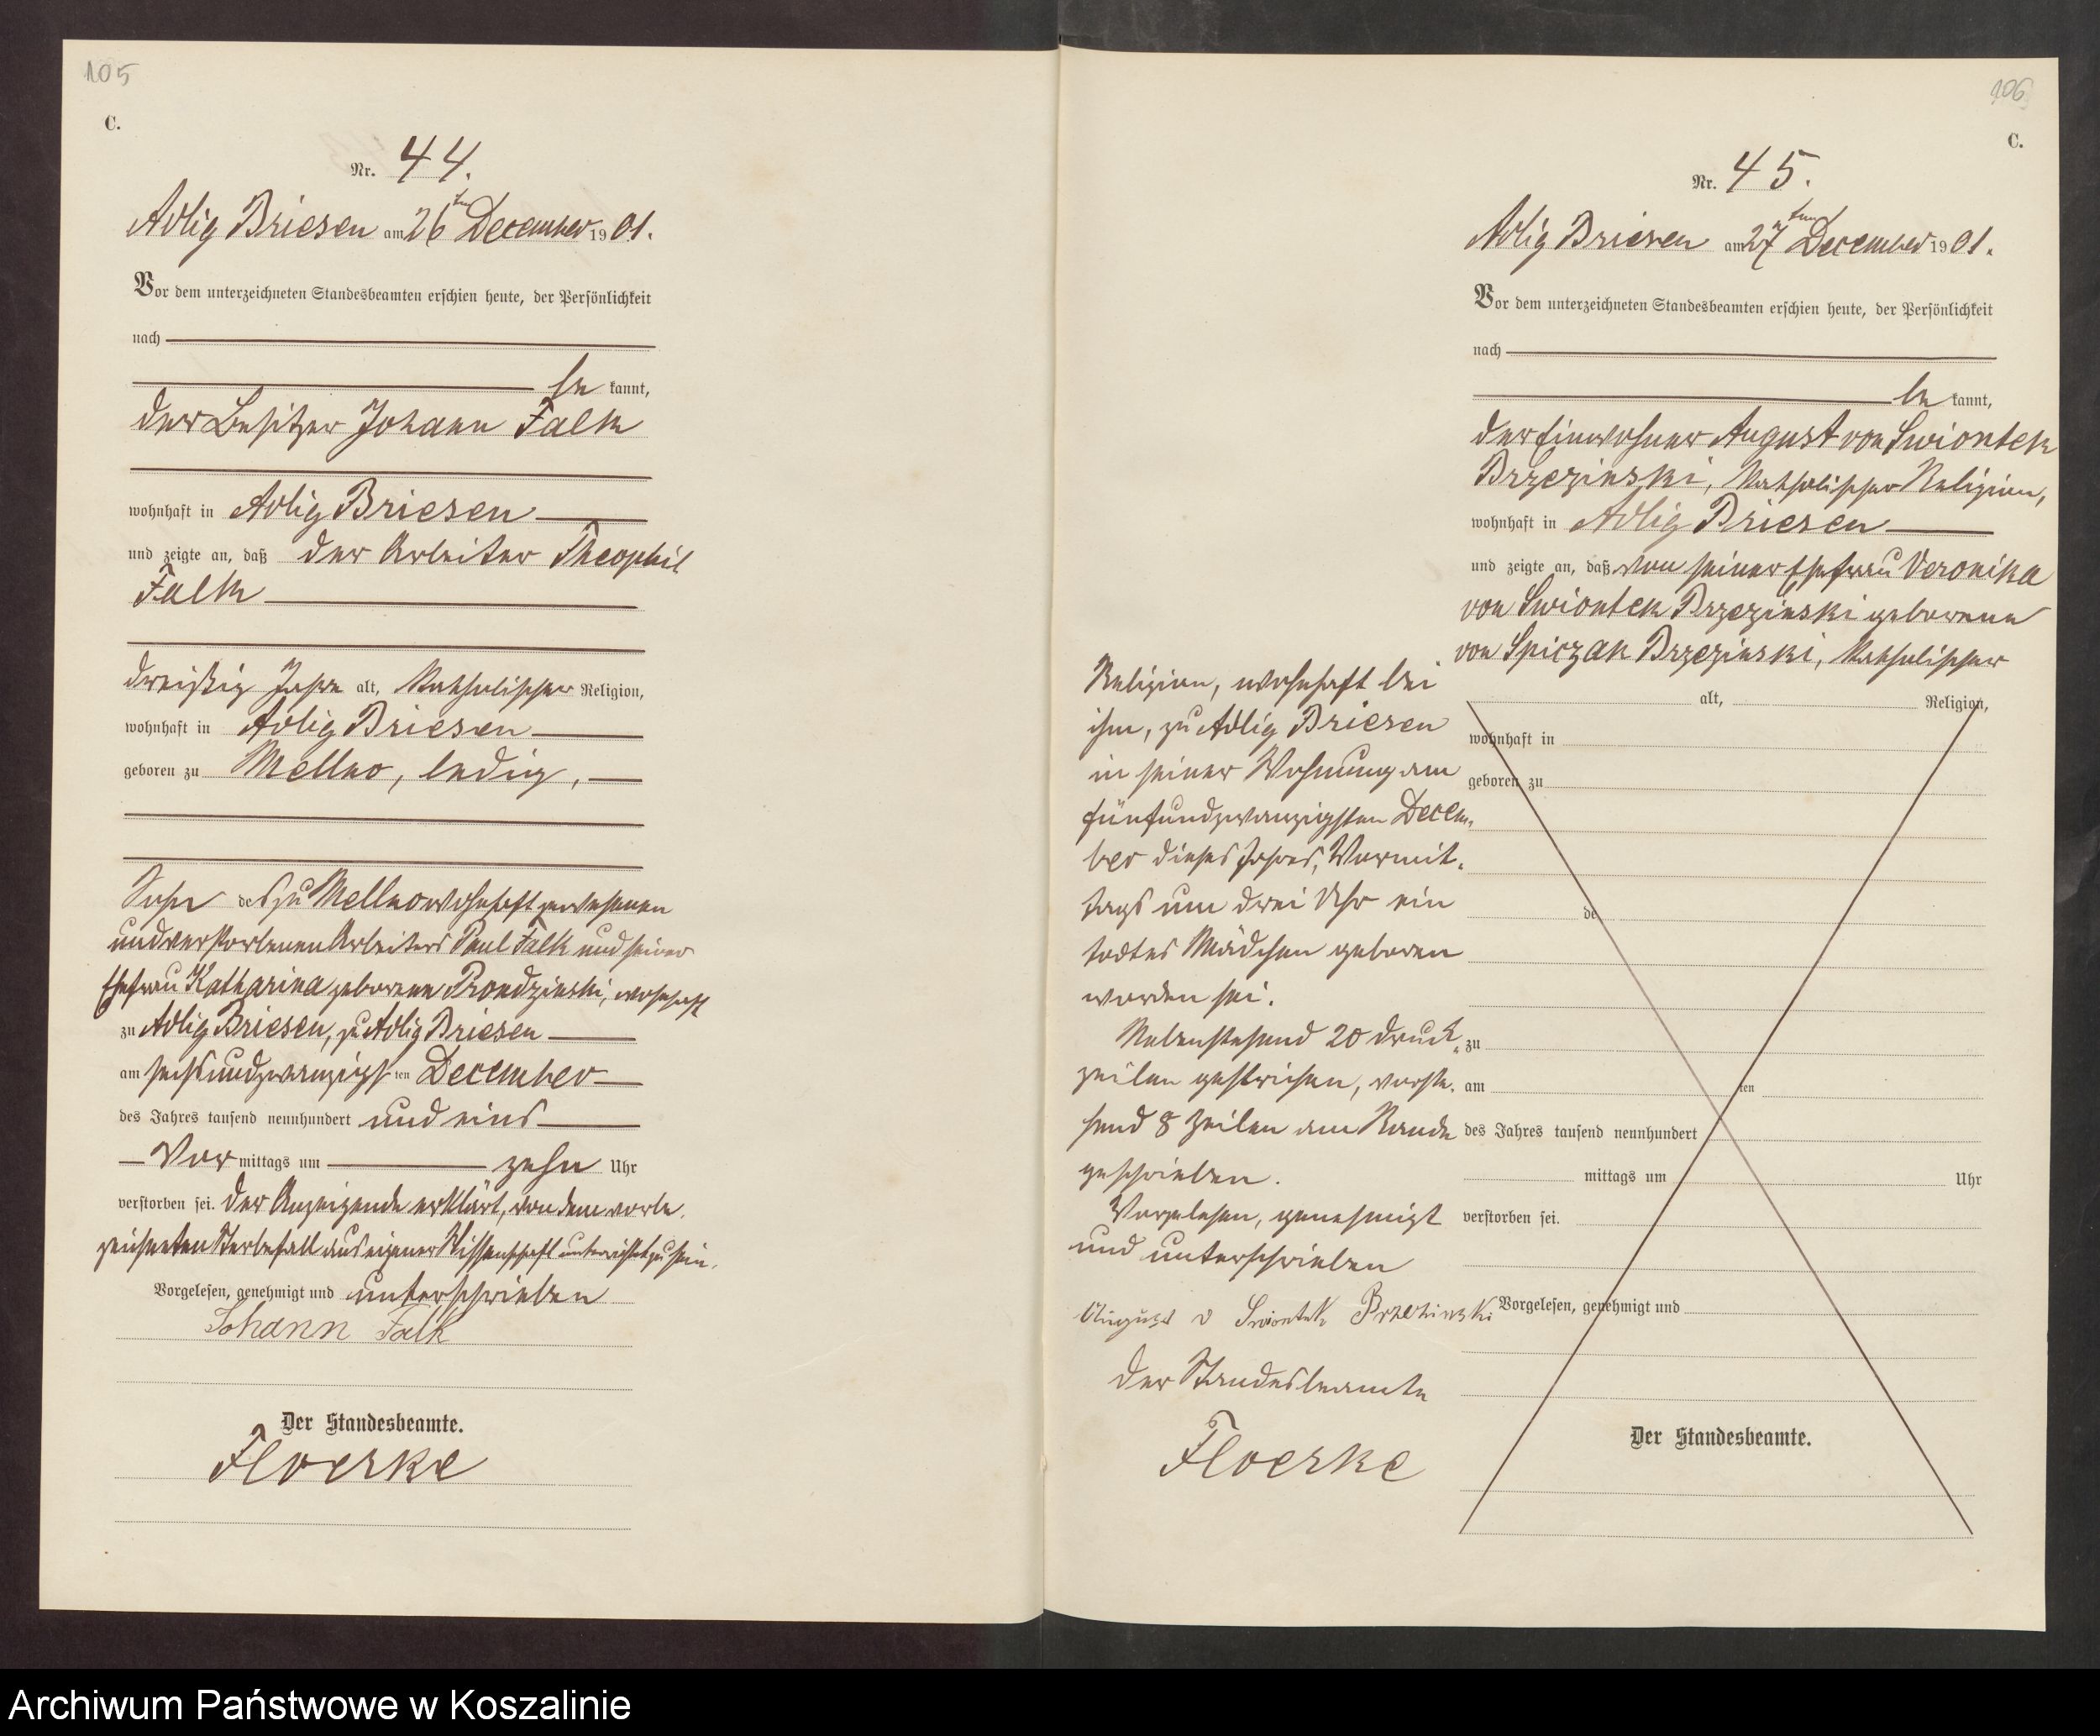 105
C.
Nr. 44.
Adlig Briesen am 26ten December 1901.
Vor dem unterzeichneten Standesbeamten erschien heute, der Persönlichkeit
nach
be kannt,
der Besitzer Johann Falk
wohnhaft in Adlig Briesen
und zeigte an, daß der Arbeiter Theophil
Falk
dreißig Jahre alt, katholischer Religion,
wohnhaft in Adlig Briesen
geboren zu Mellno, ledig,
Sohn des zu Mellno wohnhaft gewesenen
und verstorbenen Arbeiters Paul Falk und seiner
Ehefrau Katharina geborenen Prondzinski, wohnhaft
zu Adlig Briesen, zu Adlig Briesen
am sechsundzwanzigsten December
des Jahres tausend neunhundert und eins
Vor mittags um zehn Uhr
verstorben sei. Der Anzeigende erklärt, von dem vorbe-
zeichneten Sterbefall aus eigener Wissenschaft unterrichtet zu sein.
Vorgelesen, genehmigt und unterschrieben
Johann Falk
Der Standesbeamte.
Floerke
106
C.
Nr. 45.
Adlig Briesen am 27ten December 1901.
Vor dem unterzeichneten Standesbeamten erschien heute, der Persönlichkeit
nach
be kannt,
der Einwohner August von Swiontek
Brzezinski, katholischer Religion,
wohnhaft in Adlig Briesen
und zeigte an, daß von seiner Ehefrau Veronika
von Swiontek Brzezinski geborene
von Spiczak Brzezinski, katholischer
Religion, wohnhaft bei
ihm, zu Adlig Briesen
in seiner Wohnung am
fünfundzwanzigsten Decem-
ber dieses Jahres, Vormit-
tags um drei Uhr ein
todtes Mädchen geboren
worden sei.
Nebenstehend 20 Druck-
zeilen gestrichen, vorste-
hend 8 Zeilen am Rande
geschrieben.
Vorgelesen, genehmigt
und unterschrieben
August v Swiontek Brzezinski
Der Standesbeamte
Floerke
alt, Religion,
wohnhaft in
geboren zu
de
zu
am ten
des Jahres tausend neunhundert
mittags um Uhr
verstorben sei.
Vorgelesen, genehmigt und
Der Standesbeamte.
Archiwum Państwowe w Koszalinie